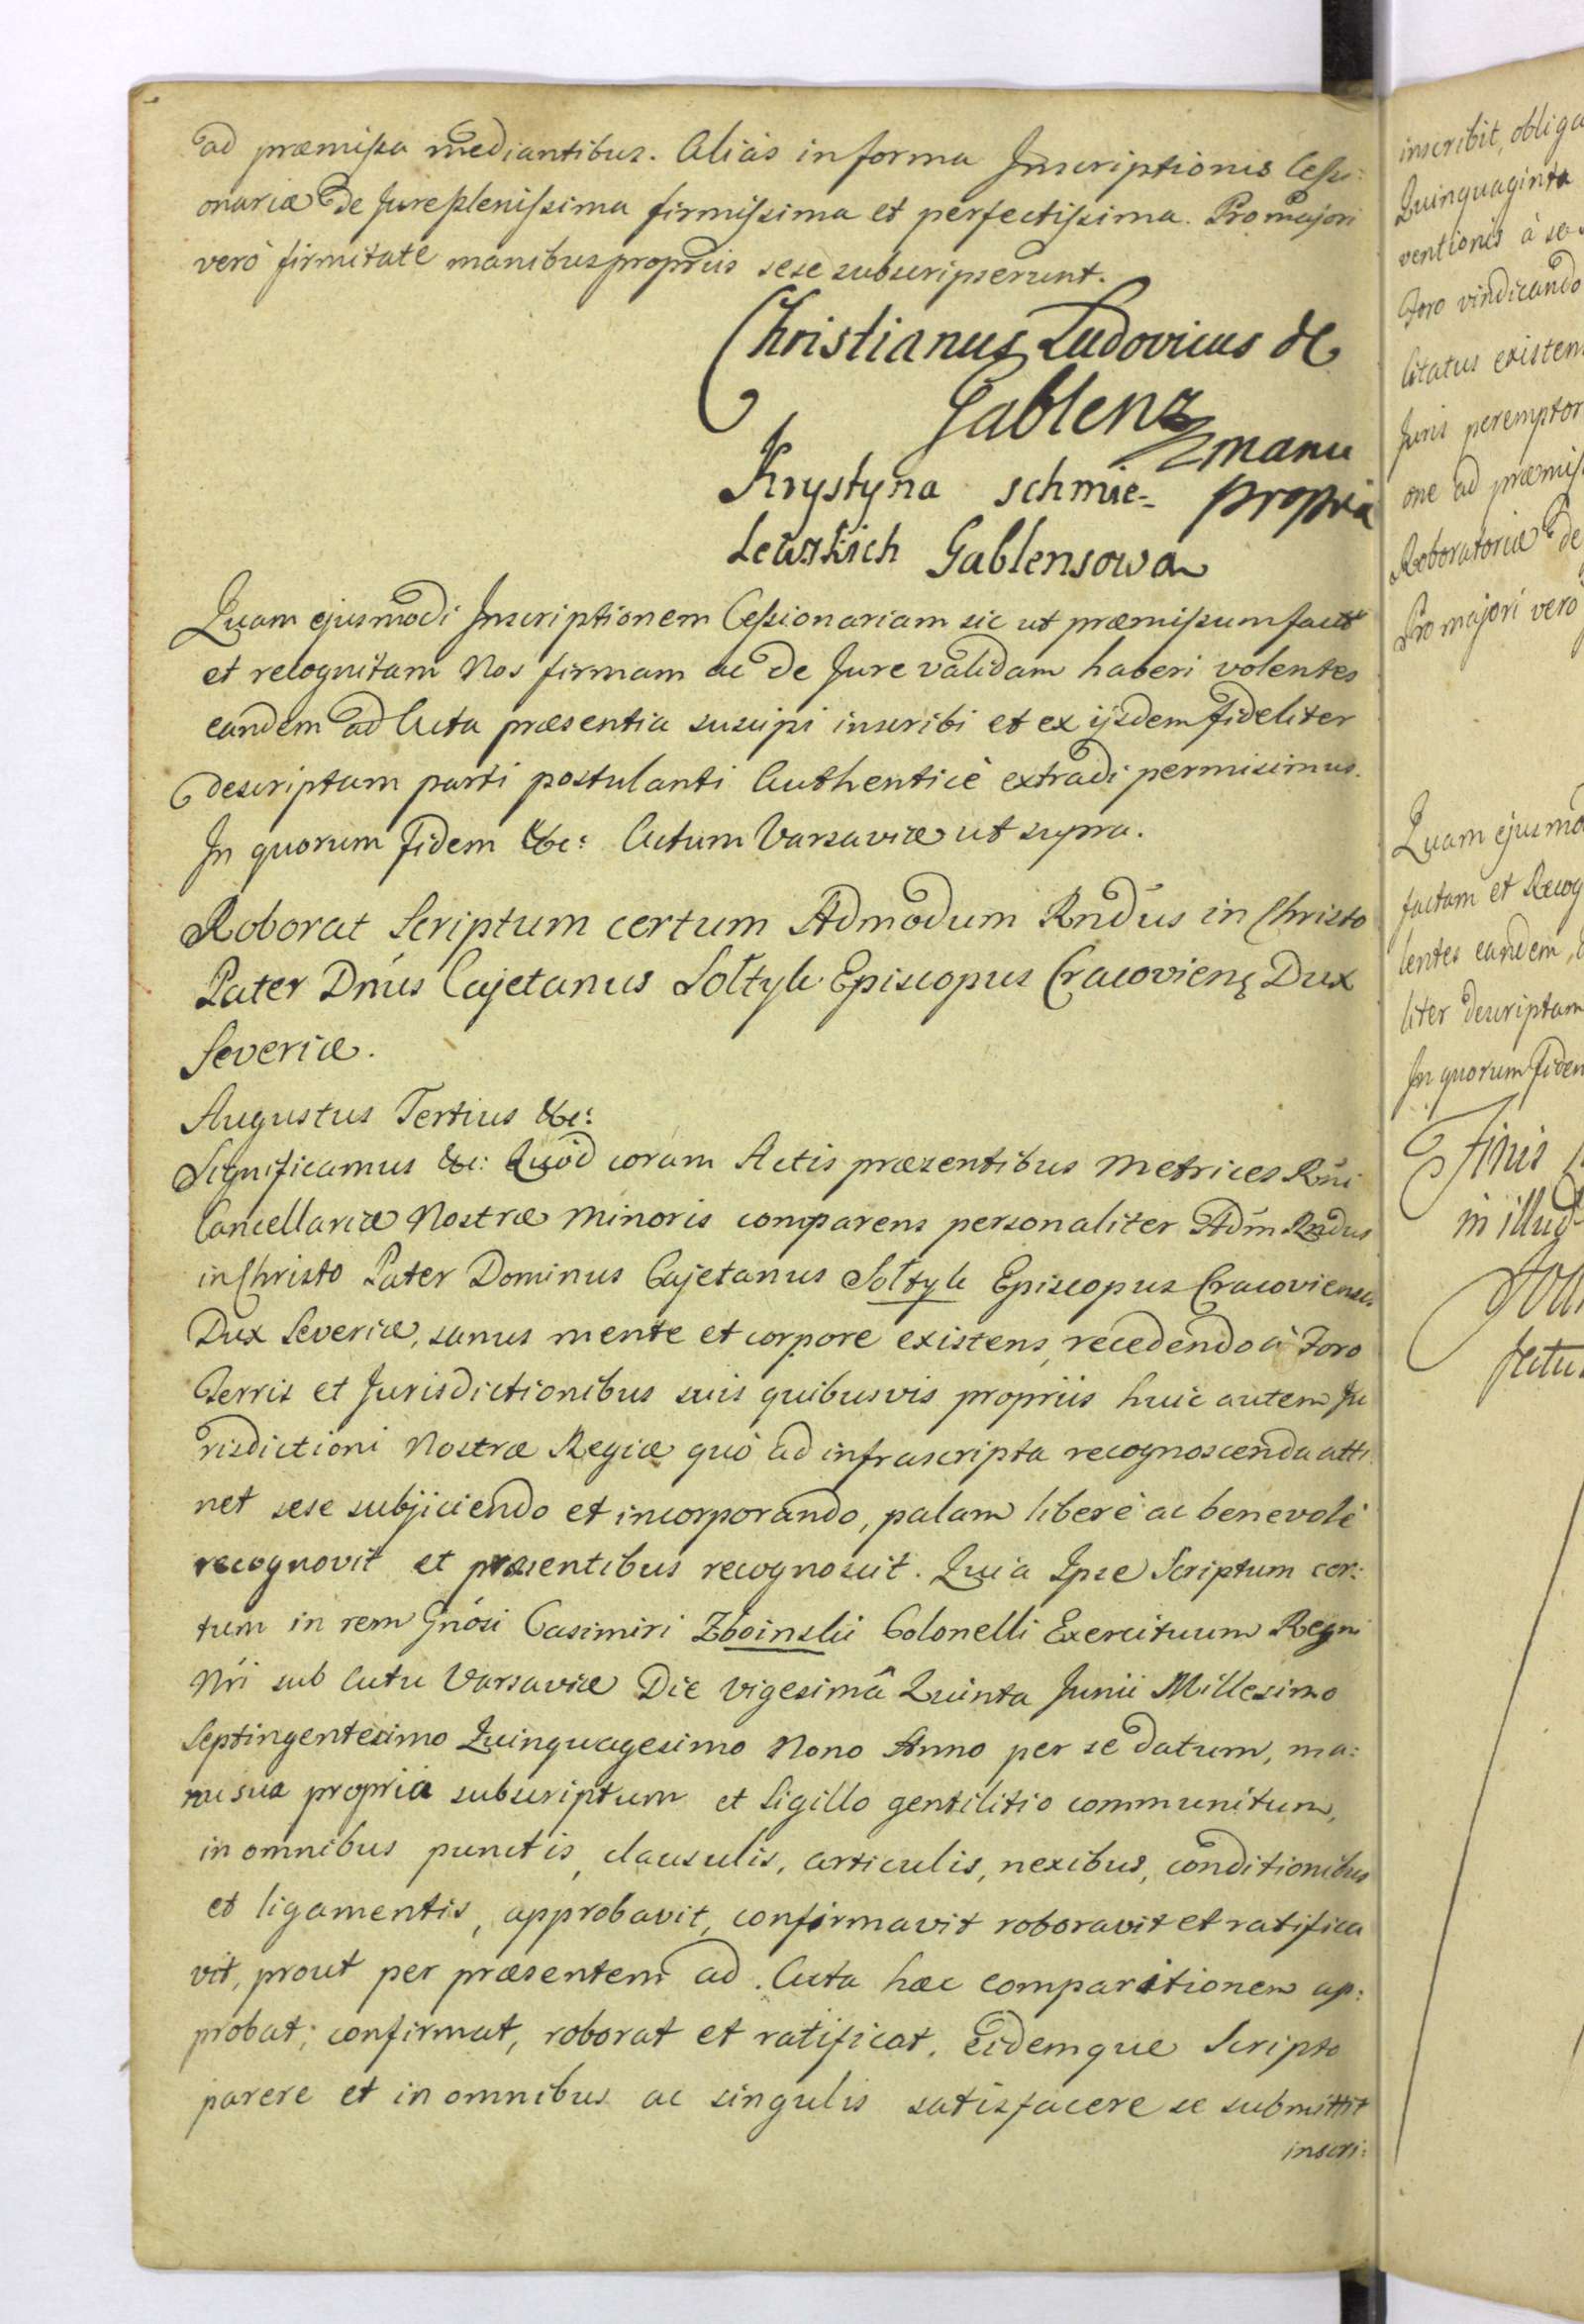 ad præmissa mediantibus. Aliàs in forma Inscriptionis Cessi:
onariæ de Jure plenissima firmissima et perfectissima. Pro majori
verò firmitate manibus propriis sese subscripserunt.
Christianus Ludovicus de
Gablenz
manu
Krystyna schmie-
propria
Leuskich Gablensowa
Quam ejusmodi Inscriptionem Cessionariam sic ut præmissum
et recognitam Nos firmam ac de Jure validam haberi volentes
eandem ad Acta præsentia suscipi inscribi et ex ijsdem fideliter
descriptam parti postulanti Authenticè extradi permisimus.
In quorum fidem &c: Actum Varsaviæ ut supra.
Roborat Scriptum certum Admodum Rndus in Christo
Pater Dnus Cajetanus Sołtyk Episcopus Cracoviens Dux
Severiæ.
Augustus Tertius &c:
Significamus &c: Quod coram Actis præsentibus Metrices Rni
Cancellariæ Nostræ Minoris comparens personaliter Adm Rndus
in Christo Pater Dominus Cajetanus Sołtyk Episcopus Cracoviensis
Dux Severiæ, sanus mente et corpore existens, recedendo à Foro
Terris et Jurisdictionibus suis quibusvis propriis huic autem Ju
risdictioni Nostræ Regiæ quò ad infrascripta recognoscenda atti
net sese subjiciendo et incorporando, palam liberè ac benevolè
recognovit et præsentibus recognoscit. Quia Ipse Scriptum cer:
tum in rem Gnosi Casimiri Zboinskii Colonelli Exercituum Regni
Nri sub Actu Varsaviæ Die Vigesimâ Quinta Junii Millesimo
Septingentesimo Quinquagesimo Nono Anno per se datum, ma:
nu sua propria subscriptum et Sigillo gentilitio communitum,
in omnibus punctis, clausulis, articulis, nexibus, conditionibus
et ligamentis, approbavit, confirmavit roboravit et ratifica
vit, prout per præsentem ad Acta hæc comparitionem ap:
probat, confirmat, roborat et ratificat. Eidemque Scripto
parere et in omnibus ac singulis satisfacere se submittit
inscri:
inscribit, obliga
Quinquaginta
ventionis à se
Foro vindicando
Citatus existen
Juris peremptor
one ad præmiss
Roboratoriæ de
Pro majori vero
Quam ejusmo
factam et Recog
lentes eandem,
liter descriptam
In quorum Fidem
Finis
in illud